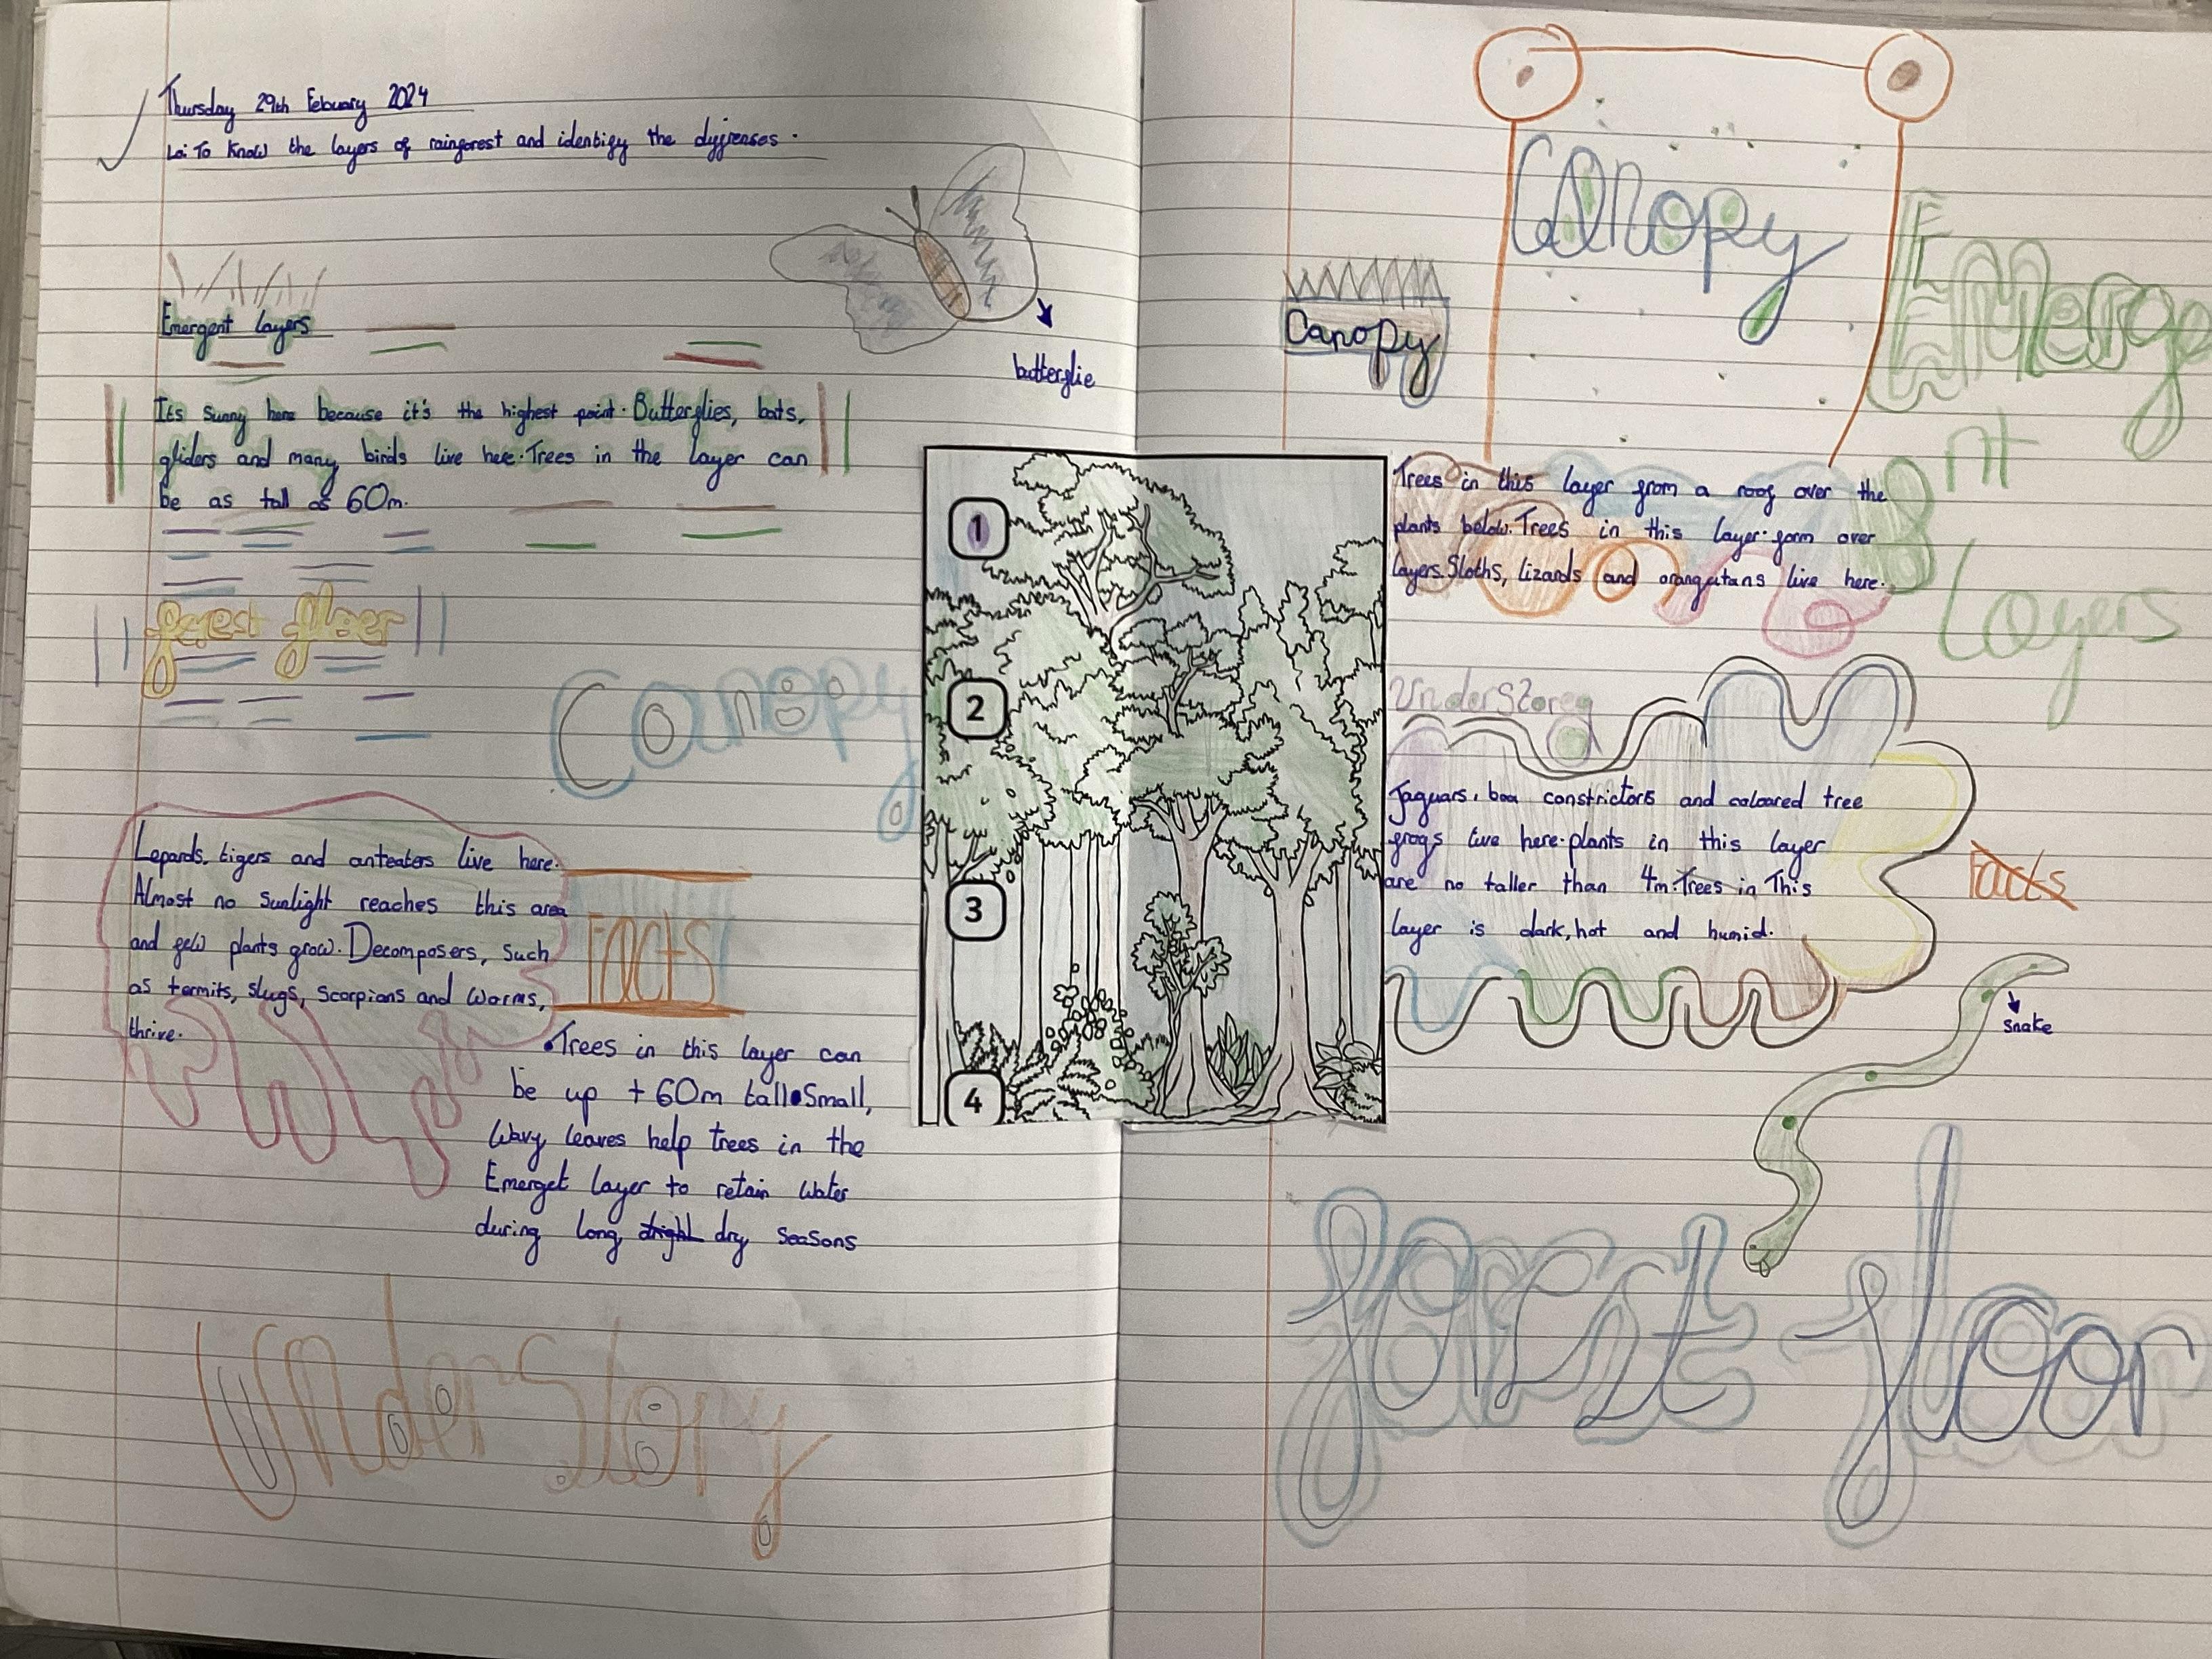 Thursday 29th Febuary 2024
Lo: To Know the layers of rainforest and identify the dyffrenses.
Emergent layers
butterflie
Its sunny here because it's the highest point. Butterflies, bats,
gliders and many birds live here. Trees in the layer can
be as tall as 60m.
forest floer
Canopy
Lepards, tigers and anteaters live here.
Almost no sunlight reaches this area
and few plants grow. Decomposers, such
as termits, slugs, scorpians and worms,
thrive.
Facts
•Trees in this layer can
be up t 60m tall•Small,
Wavy leaves help trees in the
Emerget layer to retain water
during long dry seasons
UnderStory
1
2
3
4
Canopy
Canopy
Emerge
nt
Layers
Trees in this layer from a roof over the
plants below. Trees in this layer form over
layers. Sloths, lizards and orangutans live here.
UnderStorey
Jaguars, boa constrictors and coloared tree
frogs live here. plants in this layer
are no taller than 4m. Trees in This
layer is dark, hot and humid.
Facts
snake
forest floor